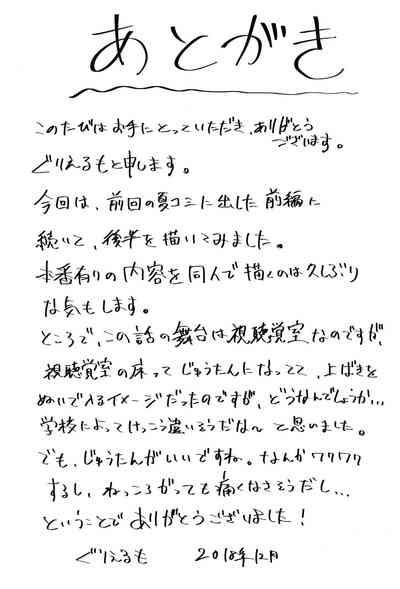 あとがき
このたびはお手にとっていただき、ありがとう
ございます。
ぐりえるもと申します。
今回は、前回の夏コミに出した前編に
続いて、後半を描いてみました。
本番有りの内容を同人で描くのは久しぶり
な気もします。
ところで、この話の舞台は視聴覚室なのですが、
視聴覚室の床って じゅうたんになってて、上ばきを
ぬいで入るイメージだったのですが、どうなんでしょうか…
学校によってけっこう違いそうだな〜 と思いました。
でも、じゅうたんがいいですね。なんかワクワク
するし、ねっころがっても痛くなさそうだし…
ということで ありがとうございました！
ぐりえるも 2018年12月